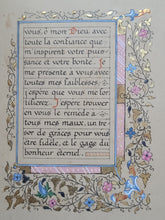 vous, ô mon Dieu avec
toute la confiance que
m'inspirent votre puis-
sance et votre bonté. Je
me présente à vous avec
toutes mes faiblesses;
j'espère que vous me for-
tifierez. J'espère trouver
en vous le remède à
tous mes maux, un tré-
sor de grâces pour vous
être fidèle, et le gage du
bonheur éternel.